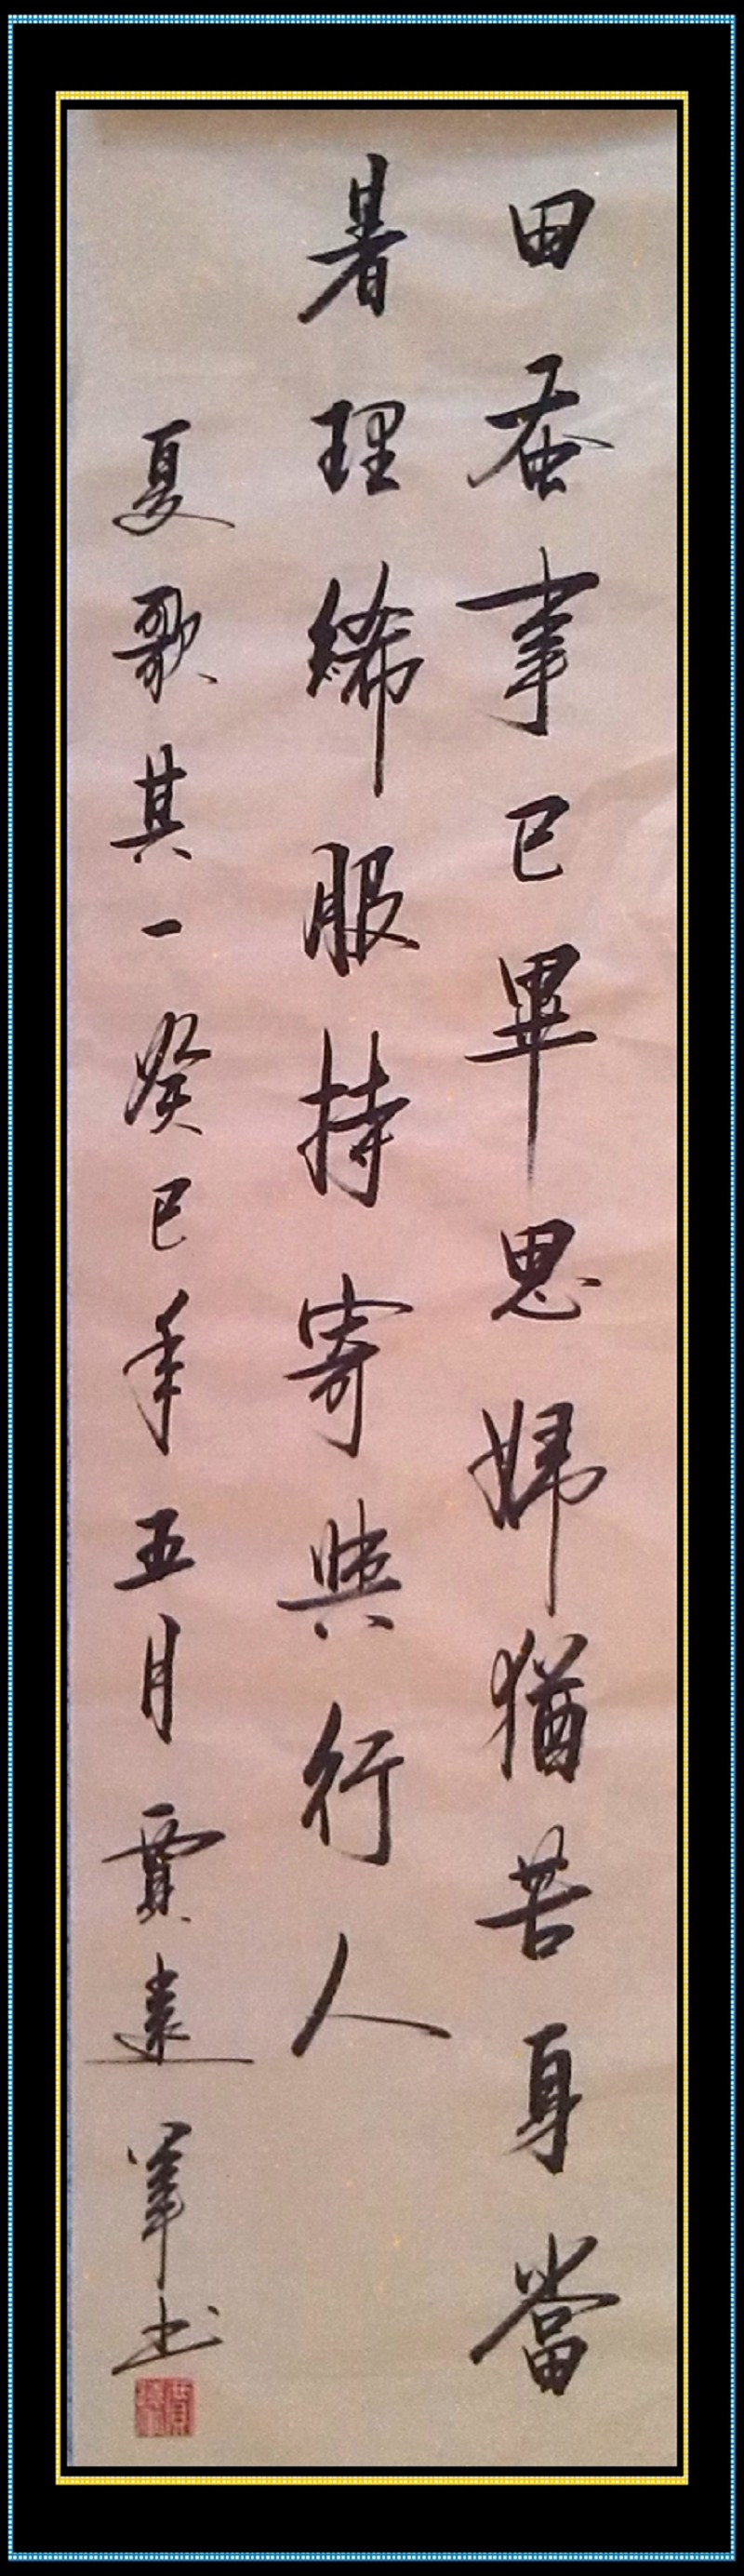 田蚕事已畢思婦猶苦身當
暑理絺服持寄與行人
夏歌其一癸巳年五月賈书